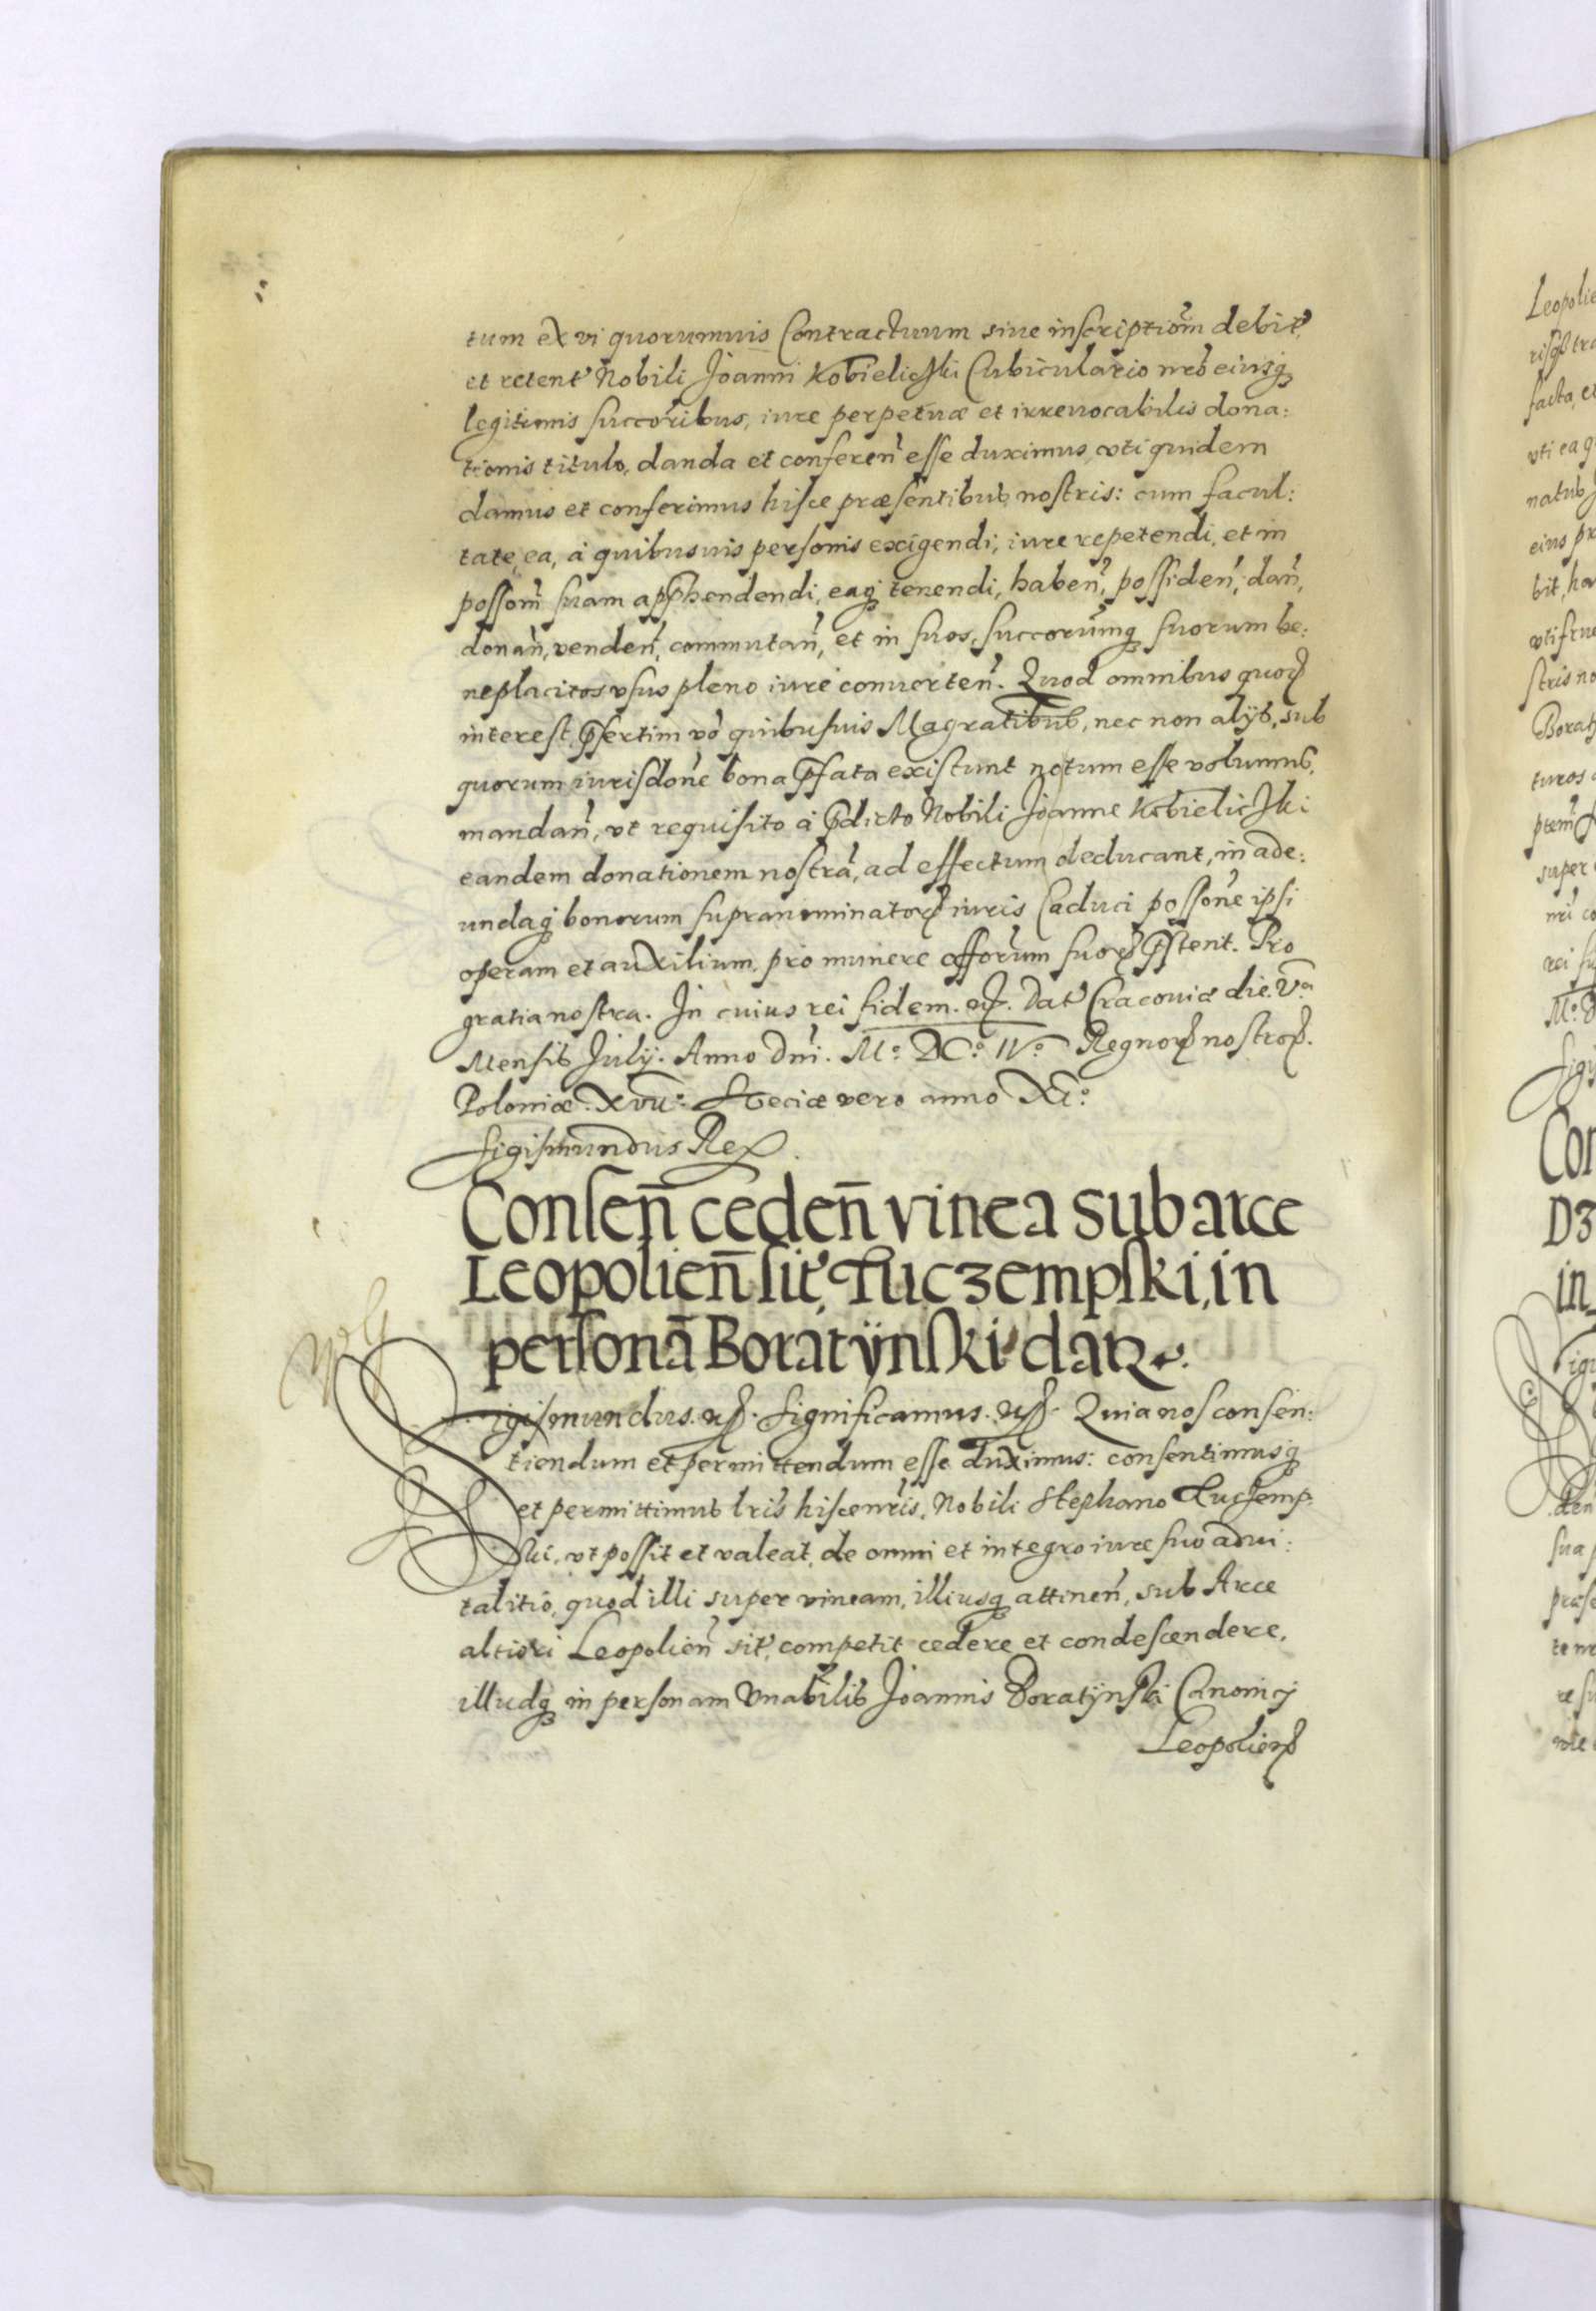 tum ex vi quorumuis Contractuum siue inscriptiom̃ debit'
et retent' Nobili Joanni Kobielicski Cubiculario nr̃o eiusq̃
legitimis succorĩbus, iure perpetuæ et irreuocabilis dona:
tionis titulo, danda et conferen̄ esse duximus, vti quidem
damus et conferimus hisce præsentibus nostris: cum facul:
tate, ea, à quibusuis personis exigendi, iure repetendi, et in
possom̃ suam app̃hendendi, eaq̃ tenendi, haben̄, possiden̄, dan̄,
donan̄, venden̄, commutan̄, et in suos, succorũmq̃ suorum be:
neplacitos vsus pleno iure conuerten̄. Quod omnibus quoꝝ
interest, p̃sertim vo᷉ quibusuis Magratibus, nec non alijs, sub
quorum iurisdonẽ bona p̃fata existunt notum esse volumus,
mandan̄, vt requisito à p̃dicto Nobili Joanne Kobielicski
eandem donationem nostrã, ad effectum deducant, in ade:
undaq̃ bonorum supranominatoꝝ iuris Caduci possonẽ ipsi
operam et auxilium, pro munere offorũm suoꝝ p̃stent. Pro
gratia nostra. In cuius rei fidem. etꝭ. Dat' Cracouiæ die. Vᵃ
Mensis July. Anno Dni. Mº. DCº. IVº Regnoꝝ nostroꝝ.
Poloniæ. XVIIº. Sveciæ vero anno XIº.
Sigismundus Rex.
Consen̄ ceden̄ vinea sub arce
Leopolien̄ sit', Tuczempski, in
personā Boratÿnski datꝛ.
Sigismundus. etꝭ. Significamus. etꝭ. Quia nos consen:
tiendum et permittendum esse duximus: consentimusq̃
et permittimus lr̃is hisce nr̃is, Nobili Stephano Tuczemp:
ski, vt possit et valeat, de omni et integro iure suo aduí:
talitio, quod illi super vineam, illiusq̃ attinen̄, sub Arce
altiori Leopolien̄ sit', competit cedere et condescendere,
illudq̃ in personam Vnabilis Joannis Boratÿnski Canonicj
Leopolienꝭ